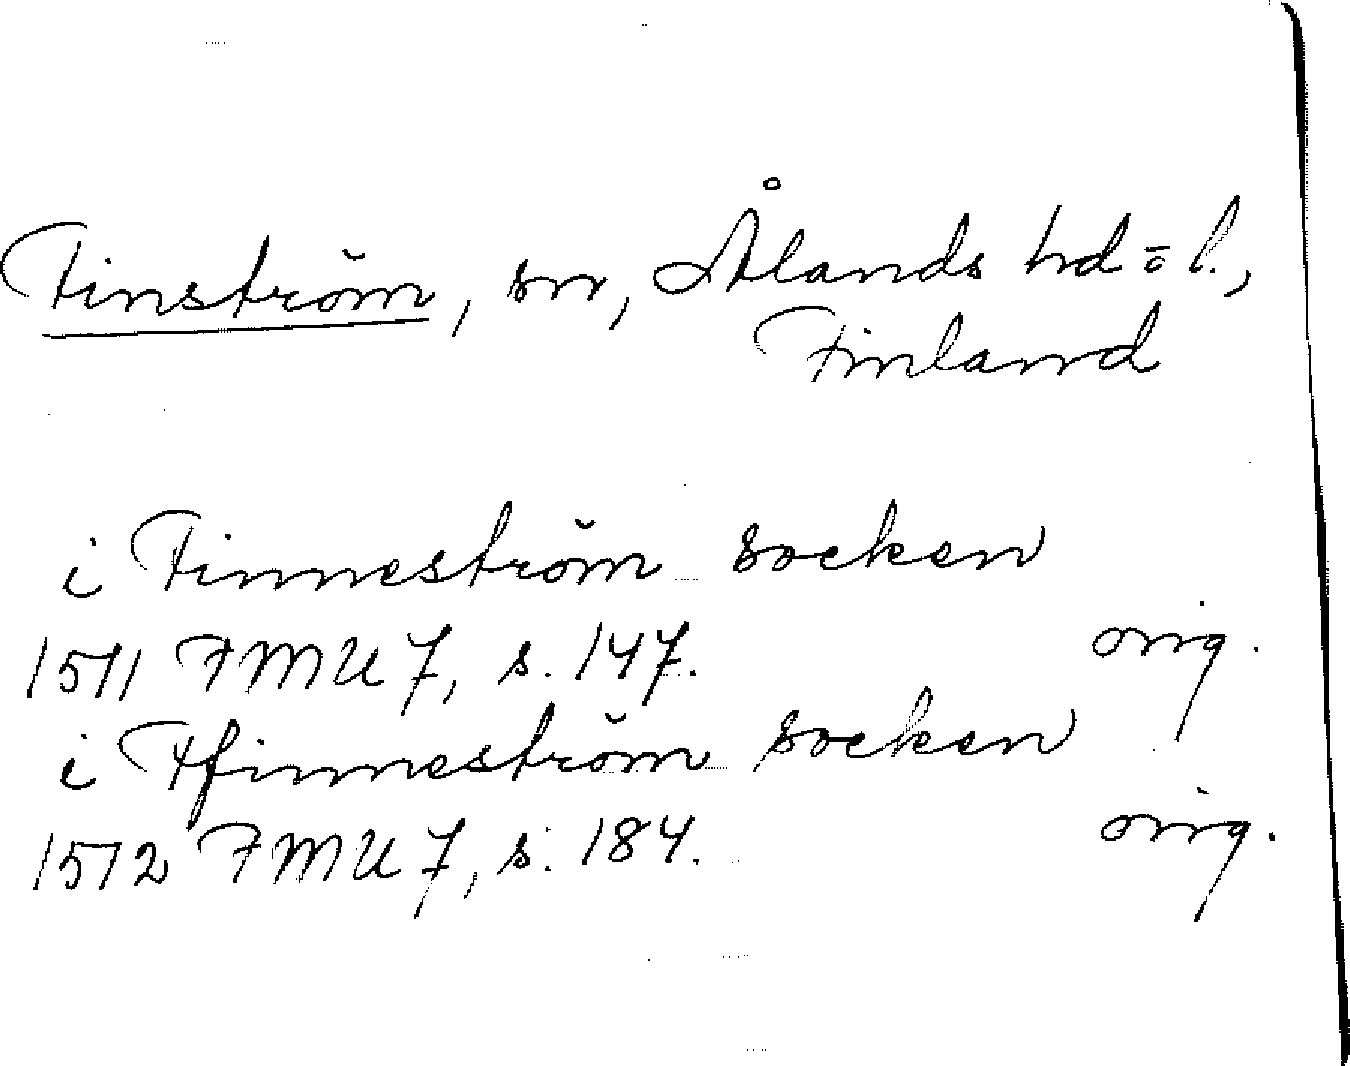 Finström, sn, Ålands hd o l.,
Finland
i Finneström socken
1511 FMU 7, s. 147. orig.
i Ffinneström socken
1512 FMU 7, s. 184. orig.